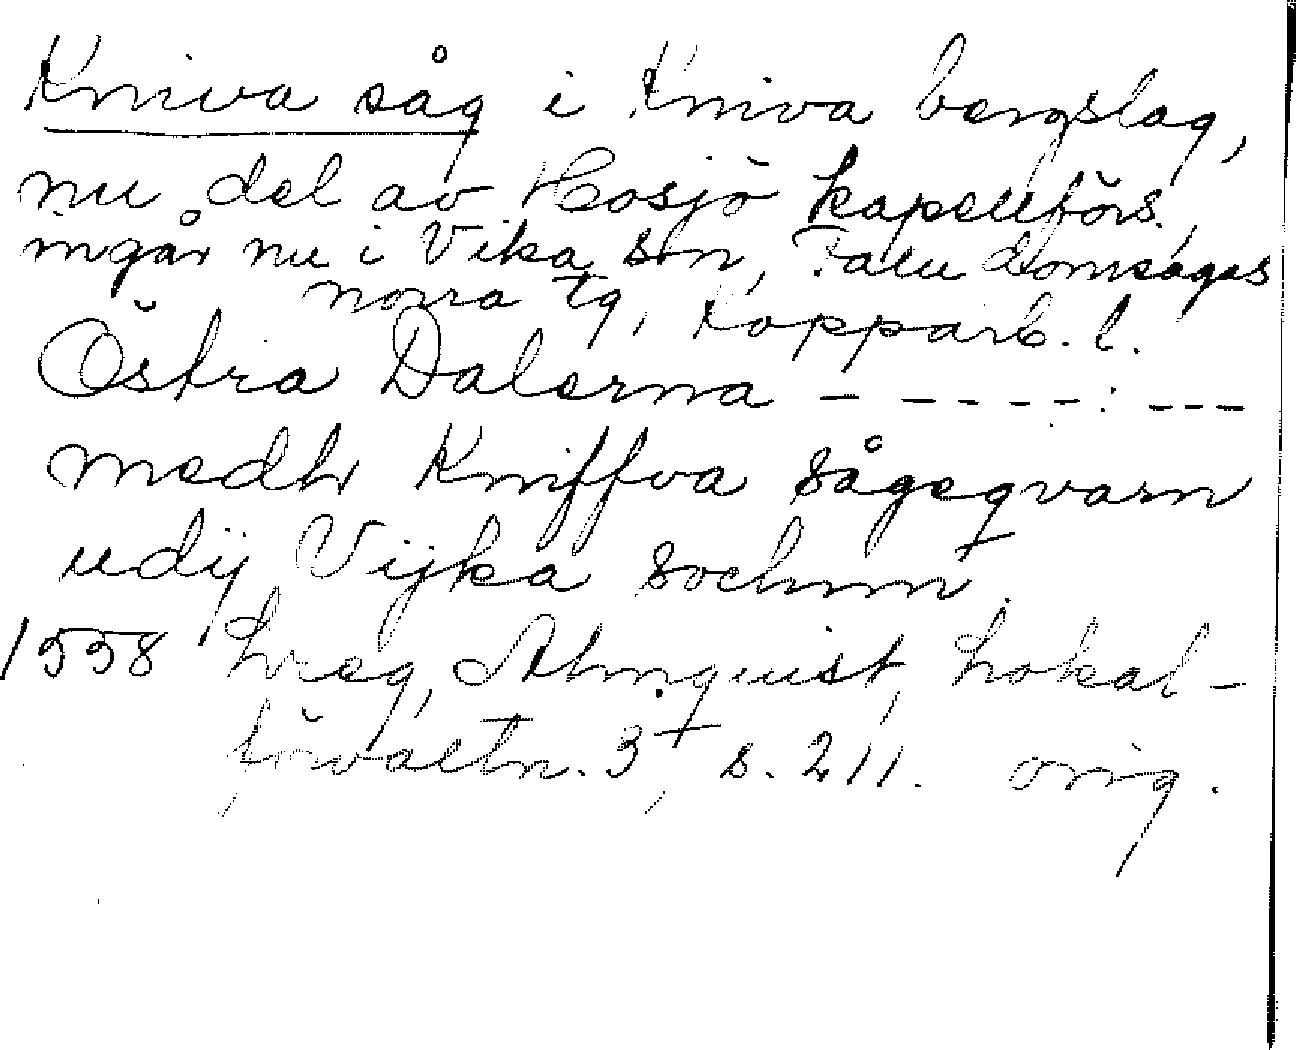 Kniva såg i Kniva bergslag,
nu del av Hosjö kapellförs.,
ingår nu i Vika sn, Falu domsagas
norra tg, Kopparb. l.
Östra Dalerna - - - - - : - - -
medh Kniffva sågeqvarn
udij Vijka sochnn.
1558 Lreg, Almquist, Lokal-
förvaltn. 3, s. 211. orig.